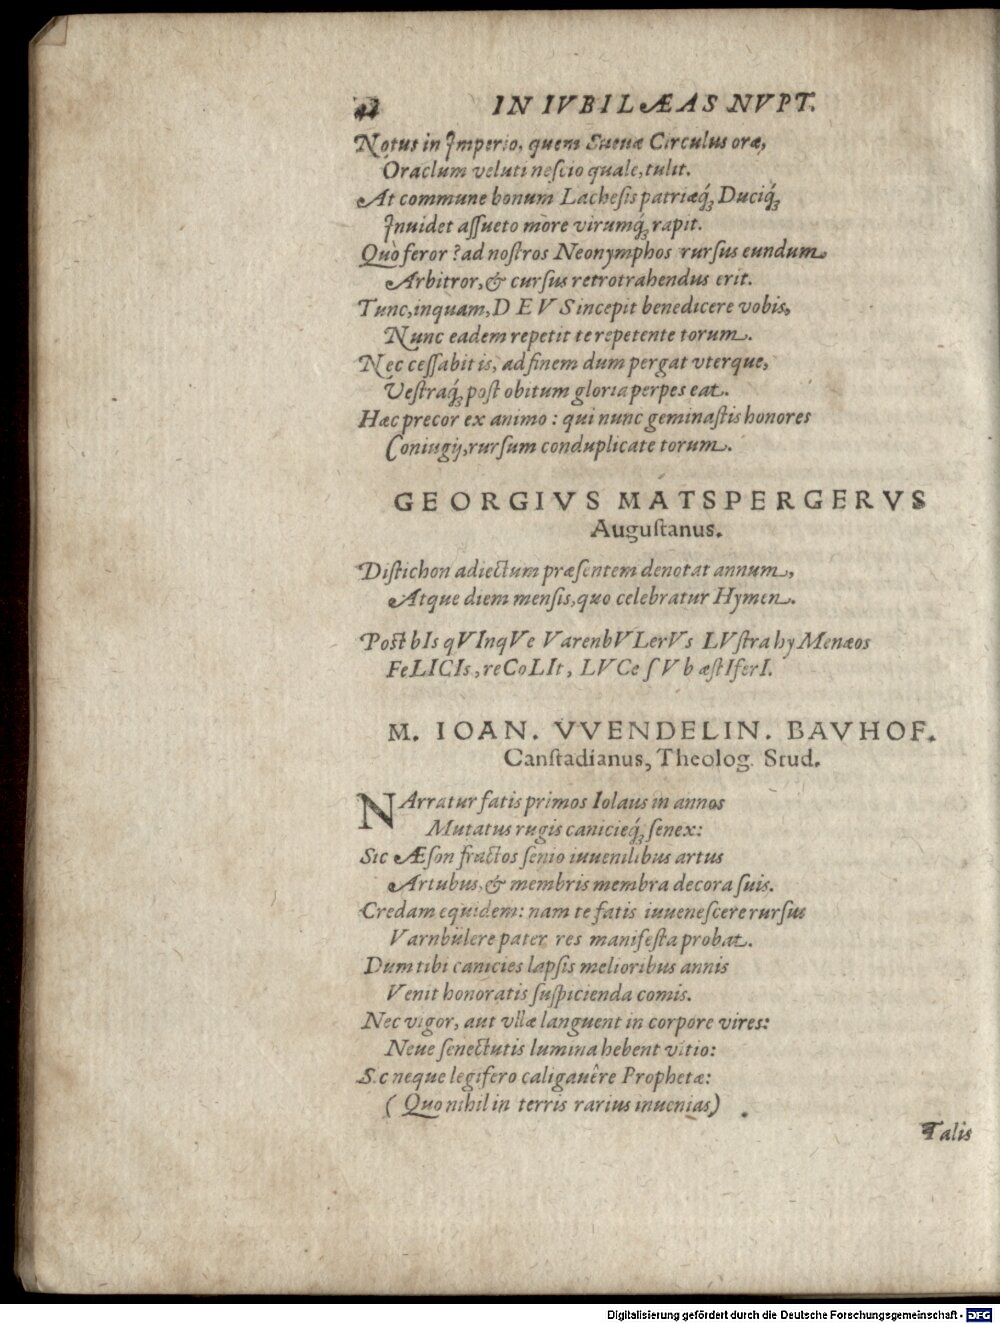 42 IN IVBILÆAS NVPT.
Notus in Imperio, quem Sueuæ Circulus oræ,
Oraclum veluti neſcio quale, tulit.
At commune bonum Lacheſis patriæq́; Duciq́;
Inuidet aſſueto more virumq́; rapit.
Quò feror? ad noſtros Neonymphos rurſus eundum
Arbitror, & curſus retrotrahendus erit.
Tunc, inquam, DEVS incepit benedicere vobis,
Nunc eadem repetit te repetente torum.
Nec ceſſabit is, ad finem dum pergat vterque,
Veſtraq́; poſt obitum gloria perpes eat.
Hæc precor ex animo: qui nunc geminaſtis honores
Coniugij, rurſum conduplicate torum.
GEORGIVS MATSPERGERVS
Auguſtanus.
Diſtichon adiectum præſentem denotat annum,
Atque diem menſis, quo celebratur Hymen.
Poſt bIs qVInqVe VarenbVLerVs LVſtra hyMenæos
FeLICIs, reCoLIt, LVCe ſVb æſtIferI.
M. IOAN. VVENDELIN. BAVHOF.
Canſtadianus, Theolog. Stud.
NArratur fatis primos Iolaus in annos
Mutatus rugis canicieq́; ſenex:
Sic Æſon fractos ſenio iuuenilibus artus
Artubus, & membris membra decora ſuis.
Credam equidem: nam te fatis iuueneſcere rurſus
Varnbülere pater res manifeſta probat.
Dum tibi canicies lapſis melioribus annis
Venit honoratis ſuſpicienda comis.
Nec vigor, aut vllæ languent in corpore vires:
Neue ſenectutis lumina hebent vitio:
Sic neque legifero caligauêre Prophetæ:
(Quo nihil in terris rarius inuenias)
Talis
Digitalisierung gefördert durch die Deutsche Forschungsgemeinschaft - DFG